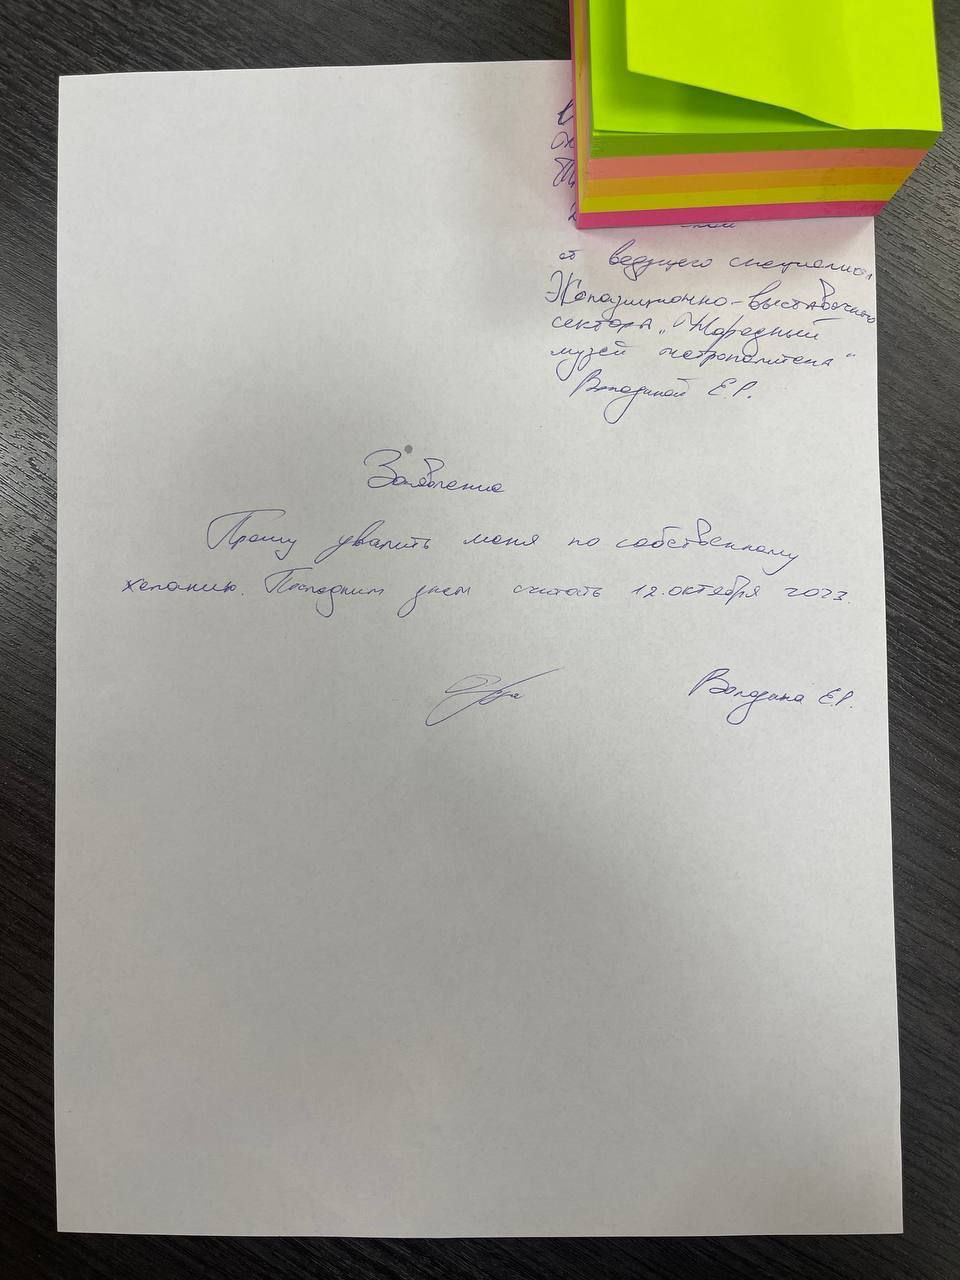 от ведущего специалиста
Экспозиционно-выставочного
сектора „Народный
музей метрополитена“
Володиной Е.Р.
Заявление
Прошу уволить меня по собственному
желанию. Последним днем считать 12 октября 2023.
Володина Е.Р.